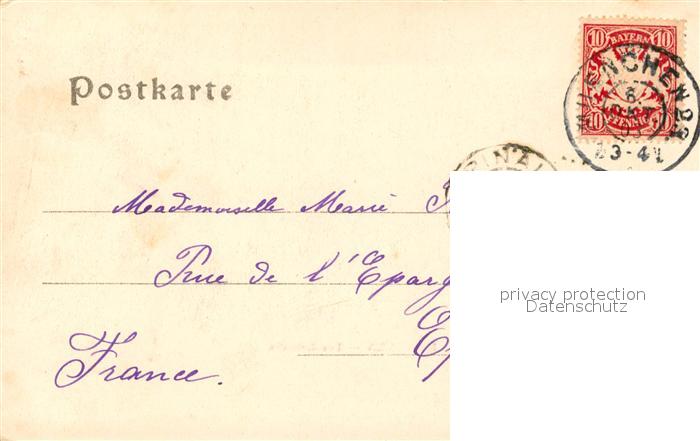 Postkarte
BAYERN
10 10
10 PFENNIG 10
MUENCHEN
3-4
Mademoiselle Marie
Rue de l'Eparg
Ep
France.
privacy protection
Datenschutz